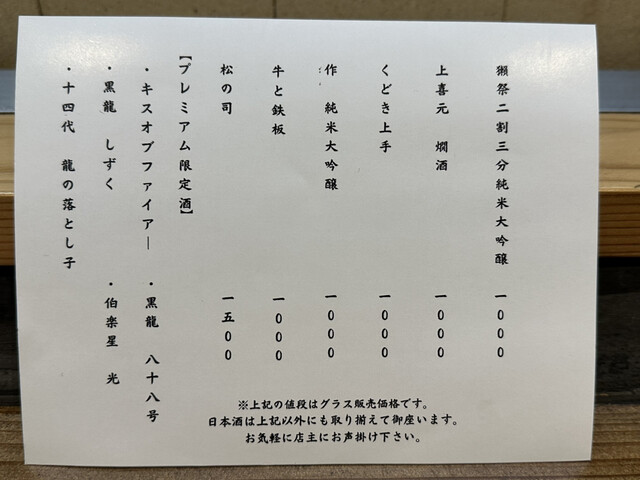 獺祭二割三分純米大吟醸 一000
上喜元 燗酒 一000
くどき上手 一000
作 純米大吟醸 一000
牛と鉄板 一000
松の司 一五00
【プレミアム限定酒】
・キスオブファイアー ・黒龍 八十八号
・黒龍 しずく ・伯楽星 光
・十四代 龍の落とし子
※上記の値段はグラス販売価格です。
日本酒は上記以外にも取り揃えて御座います。
お気軽に店主にお声掛け下さい。